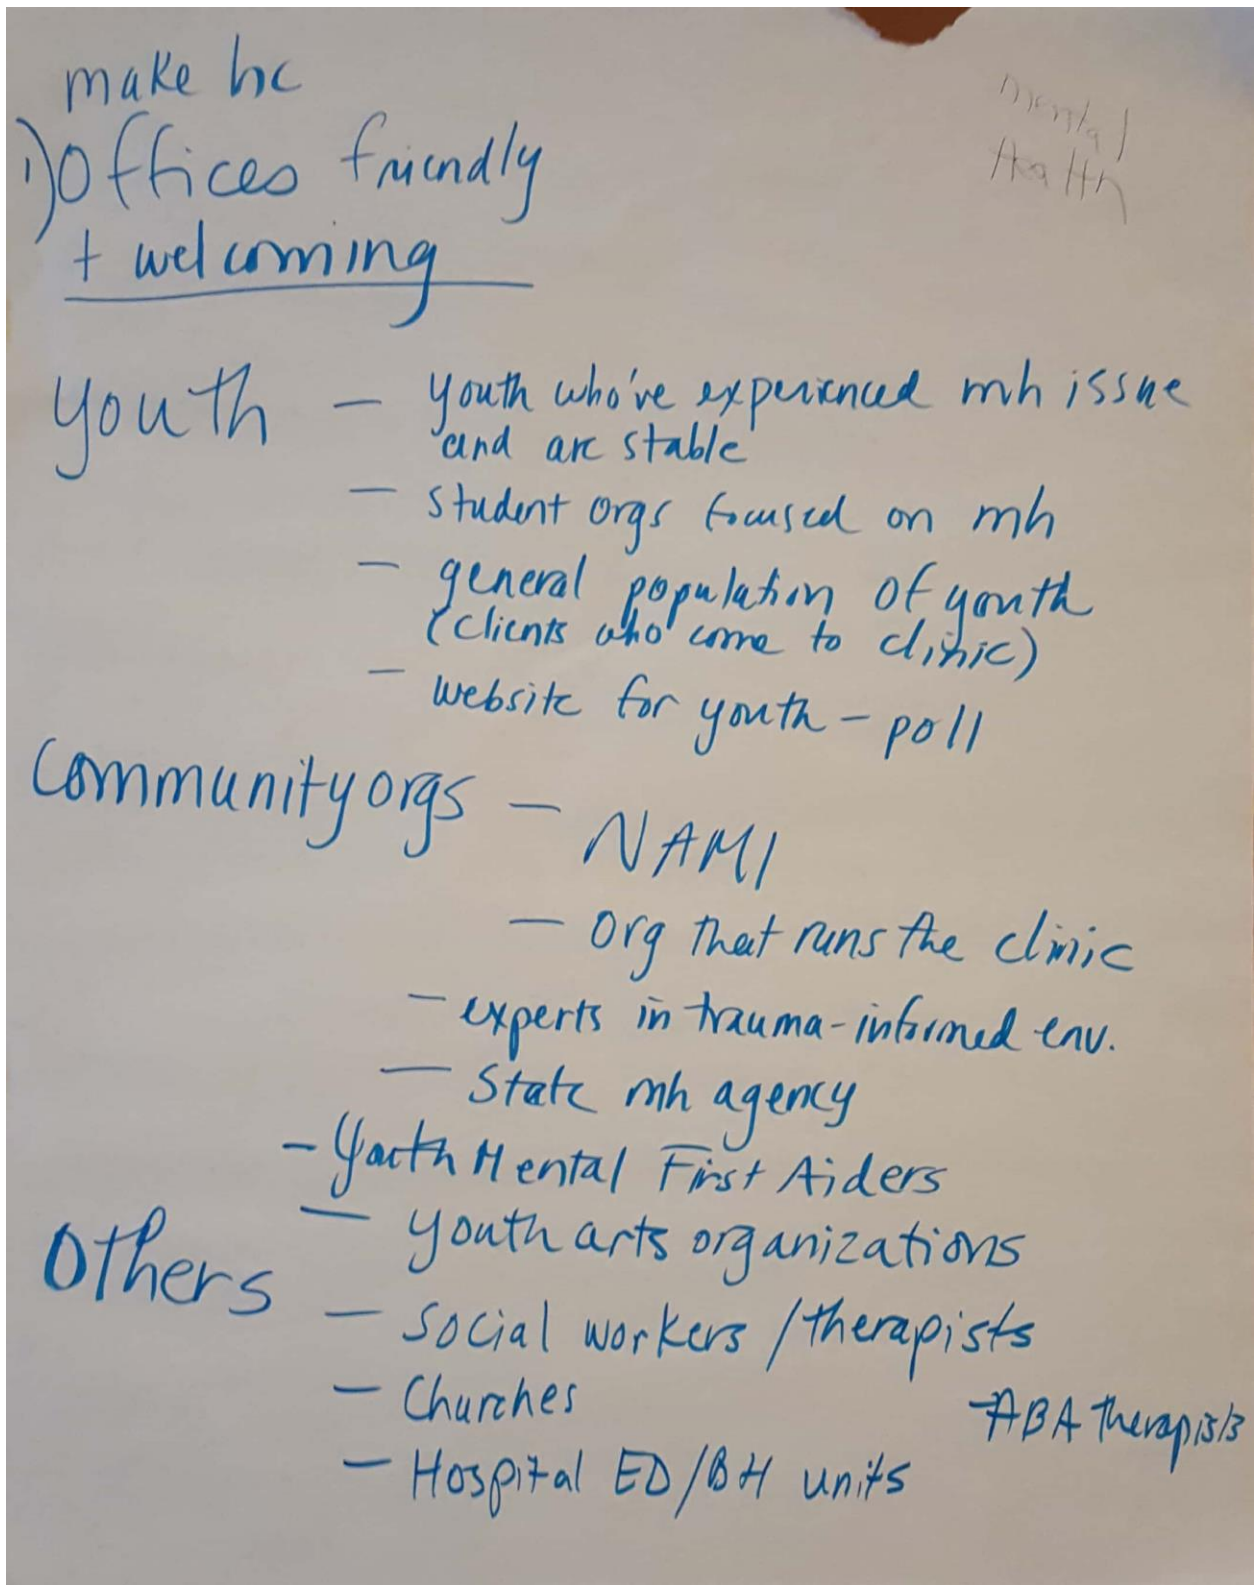 make hc
mental
Health
1) Offices friendly
+ welcoming
Youth – youth who've experienced mh issue
and are stable
– student orgs focused on mh
– general population of youth
(clients who come to clinic)
– website for youth – poll
Community orgs – NAMI
– Org that runs the clinic
– experts in trauma-informed env.
– State mh agency
– Youth Mental First Aiders
– youth arts organizations
Others
– Social workers / therapists
– Churches
– ABA therapists
– Hospital ED/BH units